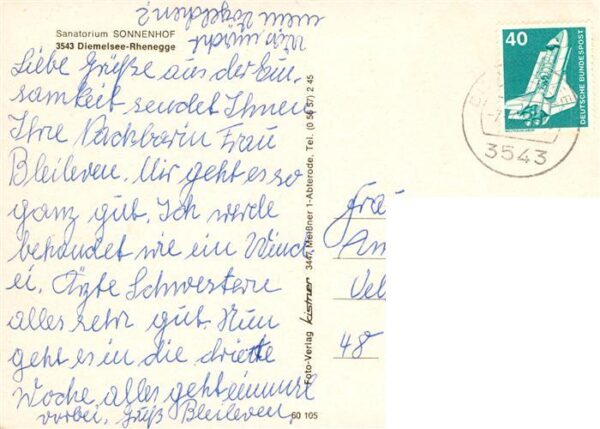 Sanatorium SONNENHOF
3543 Diemelsee-Rhenegge
Liebe Grüße aus der Ein-
samkeit sendet Ihnen
Ihre Nachbarin Frau
Bleileven. Mir geht es so
ganz gut. Ich werde
behandet wie ein Wind
ei. Ärzte Schwestern
alles sehr gut. Nun
geht es in die dritte
Woche alles geht einmal
vorbei. Gruß Bleileven,
was macht
mein Vögelchen?
Foto-Verlag kistner 3447 Meißner 1-Abterode. Tel. (0 56 57) 2 45
60 105
40
DEUTSCHE BUNDESPOST
3543
Frau
Am
Vel
48